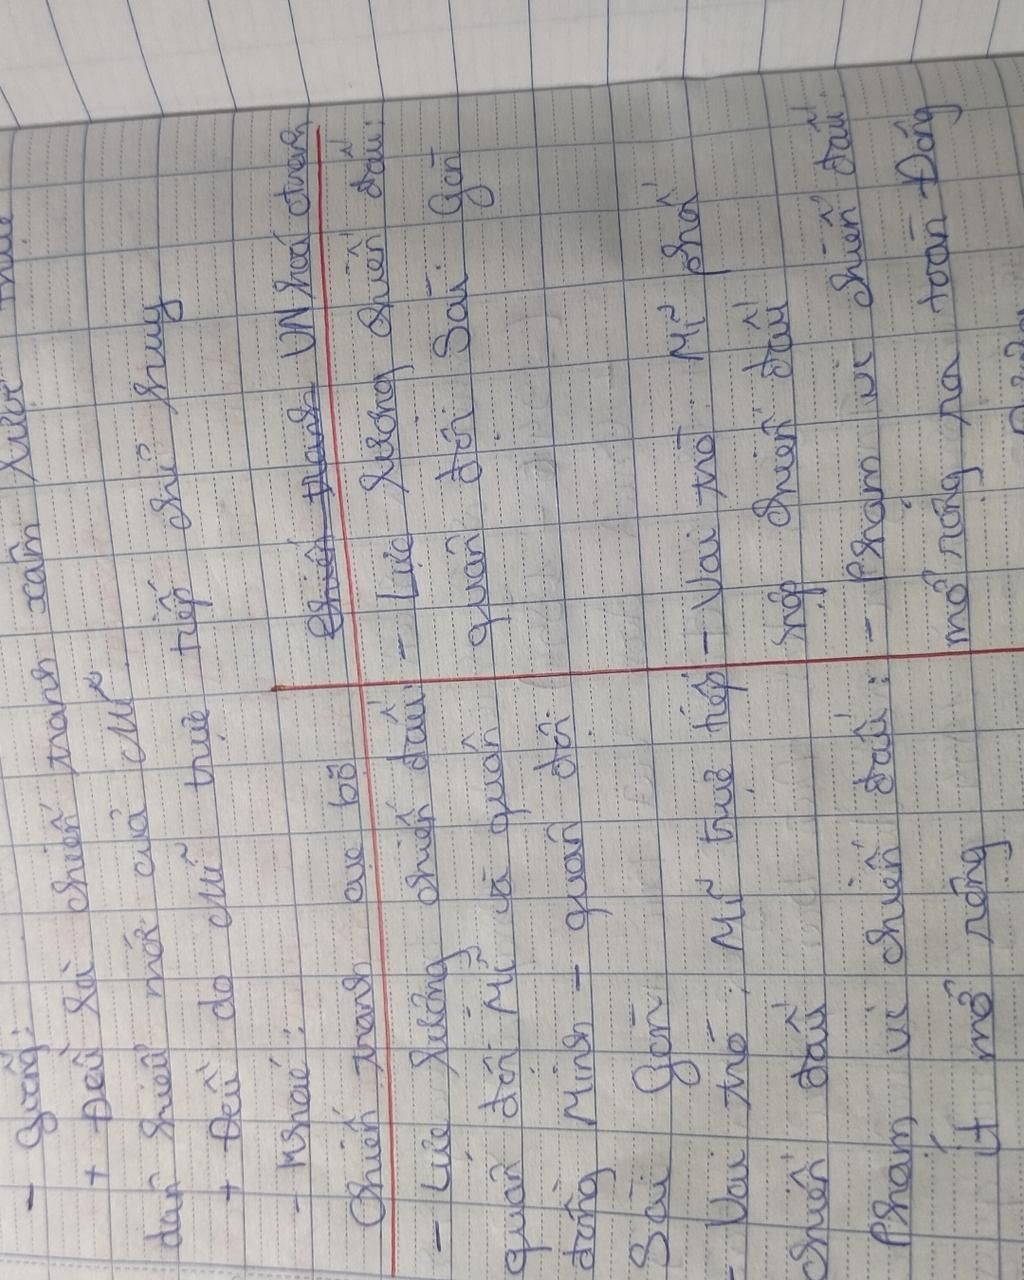 - Giống:
+ Đều là chiến tranh xâm lược thực
dân kiểu mới của Mỹ.
+ Đều do Mĩ trực tiếp chỉ huy
- Khác:
Chiến tranh cục bộ
- Lực lượng chiến đấu:
quân đội Mĩ và quân
đồng Minh - quân đội
Sài Gòn
- Vai trò: Mĩ trực tiếp
chiến đấu
Phạm vi chiến đấu:
ít mở rộng
Chiến tranh VN hoá chiến tranh
- Lực lượng chiến đấu:
quân đội Sài Gòn
- Vai trò: Mĩ phối
hợp chiến đấu
- Phạm vi chiến đấu
mở rộng ra toàn Đông